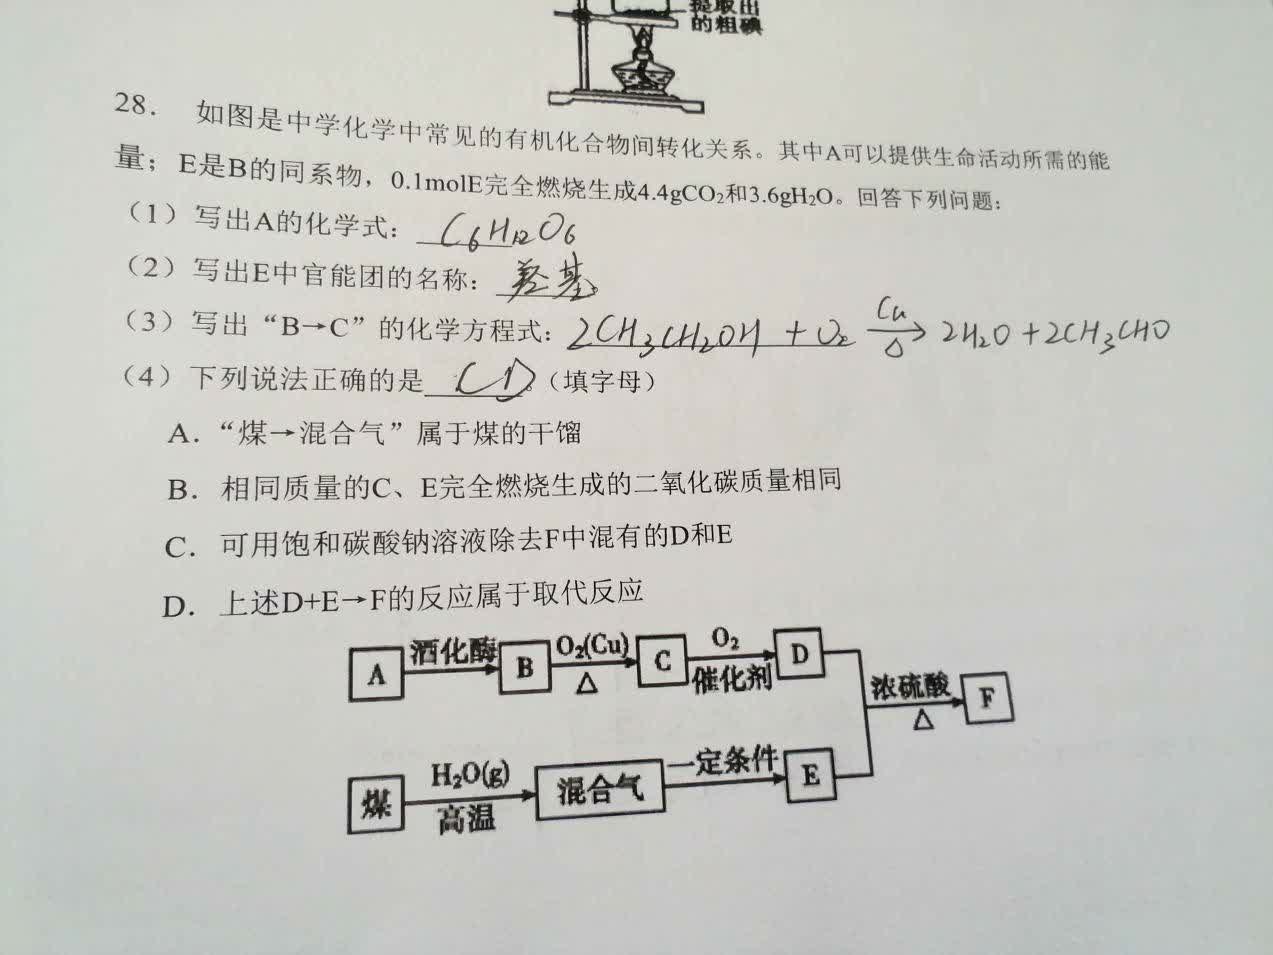 提取出
的粗碘
28． 如图是中学化学中常见的有机化合物间转化关系。其中A可以提供生命活动所需的能
量；E是B的同系物，0.1molE完全燃烧生成4.4gCO₂和3.6gH₂O。回答下列问题：
（1）写出A的化学式：C₆H₁₂O₆
（2）写出E中官能团的名称：羟基。
（3）写出“B→C”的化学方程式：2CH₃CH₂OH + O₂ Cu → △ 2H₂O + 2CH₃CHO
（4）下列说法正确的是 CD。（填字母）
A．“煤→混合气”属于煤的干馏
B．相同质量的C、E完全燃烧生成的二氧化碳质量相同
C．可用饱和碳酸钠溶液除去F中混有的D和E
D．上述D+E→F的反应属于取代反应
A 酒化酶 B O₂(Cu) △ C O₂ 催化剂 D
浓硫酸 △ F
煤 H₂O(g) 高温 混合气 一定条件 E